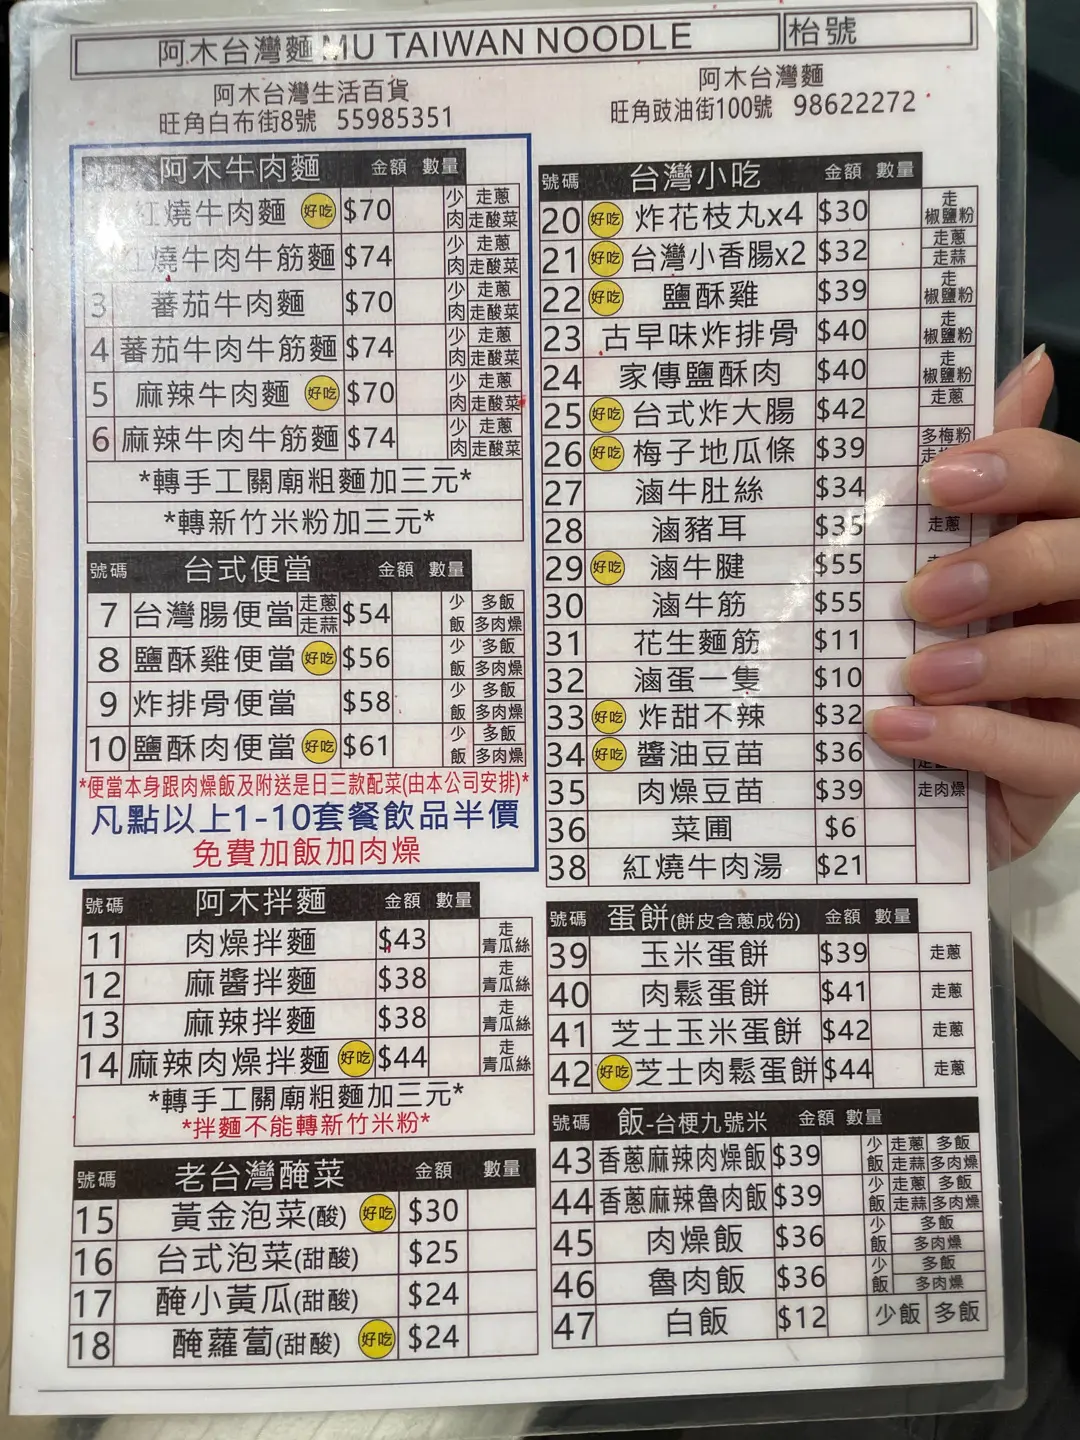 阿木台灣麵 MU TAIWAN NOODLE 枱號
阿木台灣生活百貨
旺角白布街8號 55985351
阿木台灣麵
旺角豉油街100號 98622272
阿木牛肉麵 金額 數量
紅燒牛肉麵 好吃 $70 少肉 走蔥 走酸菜
紅燒牛肉牛筋麵 $74 少肉 走蔥 走酸菜
3 蕃茄牛肉麵 $70 少肉 走蔥 走酸菜
4 蕃茄牛肉牛筋麵 $74 少肉 走蔥 走酸菜
5 麻辣牛肉麵 好吃 $70 少肉 走蔥 走酸菜
6 麻辣牛肉牛筋麵 $74 少肉 走蔥 走酸菜
*轉手工關廟粗麵加三元*
*轉新竹米粉加三元*
號碼 台式便當 金額 數量
7 台灣腸便當 走蔥 走蒜 $54 少飯 多飯 多肉燥
8 鹽酥雞便當 好吃 $56 少飯 多飯 多肉燥
9 炸排骨便當 $58 少飯 多飯 多肉燥
10 鹽酥肉便當 好吃 $61 少飯 多飯 多肉燥
*便當本身跟肉燥飯及附送是日三款配菜(由本公司安排)*
凡點以上1-10套餐飲品半價
免費加飯加肉燥
號碼 阿木拌麵 金額 數量
11 肉燥拌麵 $43 走青瓜絲
12 麻醬拌麵 $38 走青瓜絲
13 麻辣拌麵 $38 走青瓜絲
14 麻辣肉燥拌麵 好吃 $44 走青瓜絲
*轉手工關廟粗麵加三元*
*拌麵不能轉新竹米粉*
號碼 老台灣醃菜 金額 數量
15 黃金泡菜(酸) 好吃 $30
16 台式泡菜(甜酸) $25
17 醃小黃瓜(甜酸) $24
18 醃蘿蔔(甜酸) 好吃 $24
號碼 台灣小吃 金額 數量
20 好吃 炸花枝丸x4 $30 走椒鹽粉
21 好吃 台灣小香腸x2 $32 走蔥 走蒜
22 好吃 鹽酥雞 $39 走椒鹽粉
23 古早味炸排骨 $40 走椒鹽粉
24 家傳鹽酥肉 $40 走椒鹽粉
25 好吃 台式炸大腸 $42 走蔥
26 好吃 梅子地瓜條 $39 多梅粉 走
27 滷牛肚絲 $34
28 滷豬耳 $35 走蔥
29 好吃 滷牛腱 $55
30 滷牛筋 $55
31 花生麵筋 $11
32 滷蛋一隻 $10
33 好吃 炸甜不辣 $32
34 好吃 醬油豆苗 $36
35 肉燥豆苗 $39 走肉燥
36 菜圃 $6
38 紅燒牛肉湯 $21
號碼 蛋餅(餅皮含蔥成份) 金額 數量
39 玉米蛋餅 $39 走蔥
40 肉鬆蛋餅 $41 走蔥
41 芝士玉米蛋餅 $42 走蔥
42 好吃 芝士肉鬆蛋餅 $44 走蔥
號碼 飯-台梗九號米 金額 數量
43 香蔥麻辣肉燥飯 $39 少飯 走蔥 走蒜 多飯 多肉燥
44 香蔥麻辣魯肉飯 $39 少飯 走蔥 走蒜 多飯 多肉燥
45 肉燥飯 $36 少飯 多飯 多肉燥
46 魯肉飯 $36 少飯 多飯 多肉燥
47 白飯 $12 少飯 多飯